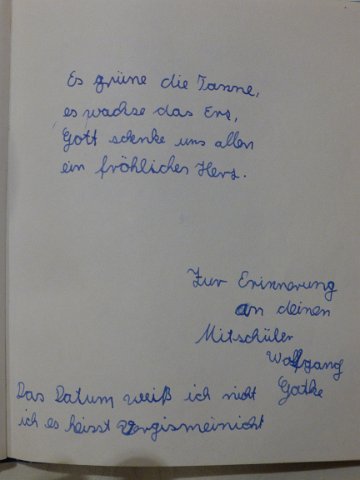 Es grüne die Tanne,
es wachse das Erz,
Gott schenke uns allen
ein fröhliches Herz.
Zur Erinnerung
an deinen
Mitschüler
Wolfgang
Gatke
Das Datum weiß ich nicht
ich es heisst Vergismeinicht